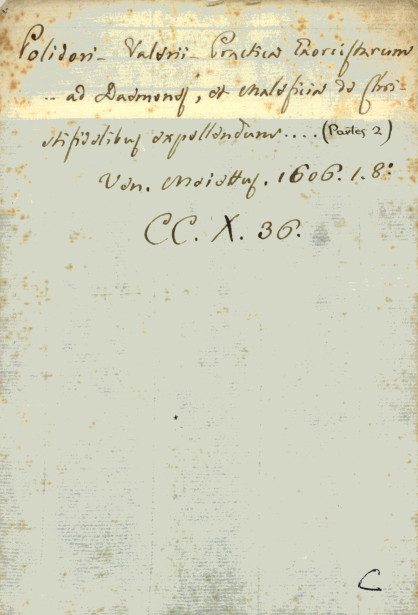 Polidori Valerii Practica Exorcistarum
... ad Daemones, et Maleficia de Chri-
stifidelibus expellendum .... (Partes 2)
Ven. Meiettus. 1606. 1. 8:
CC. X. 36.
C